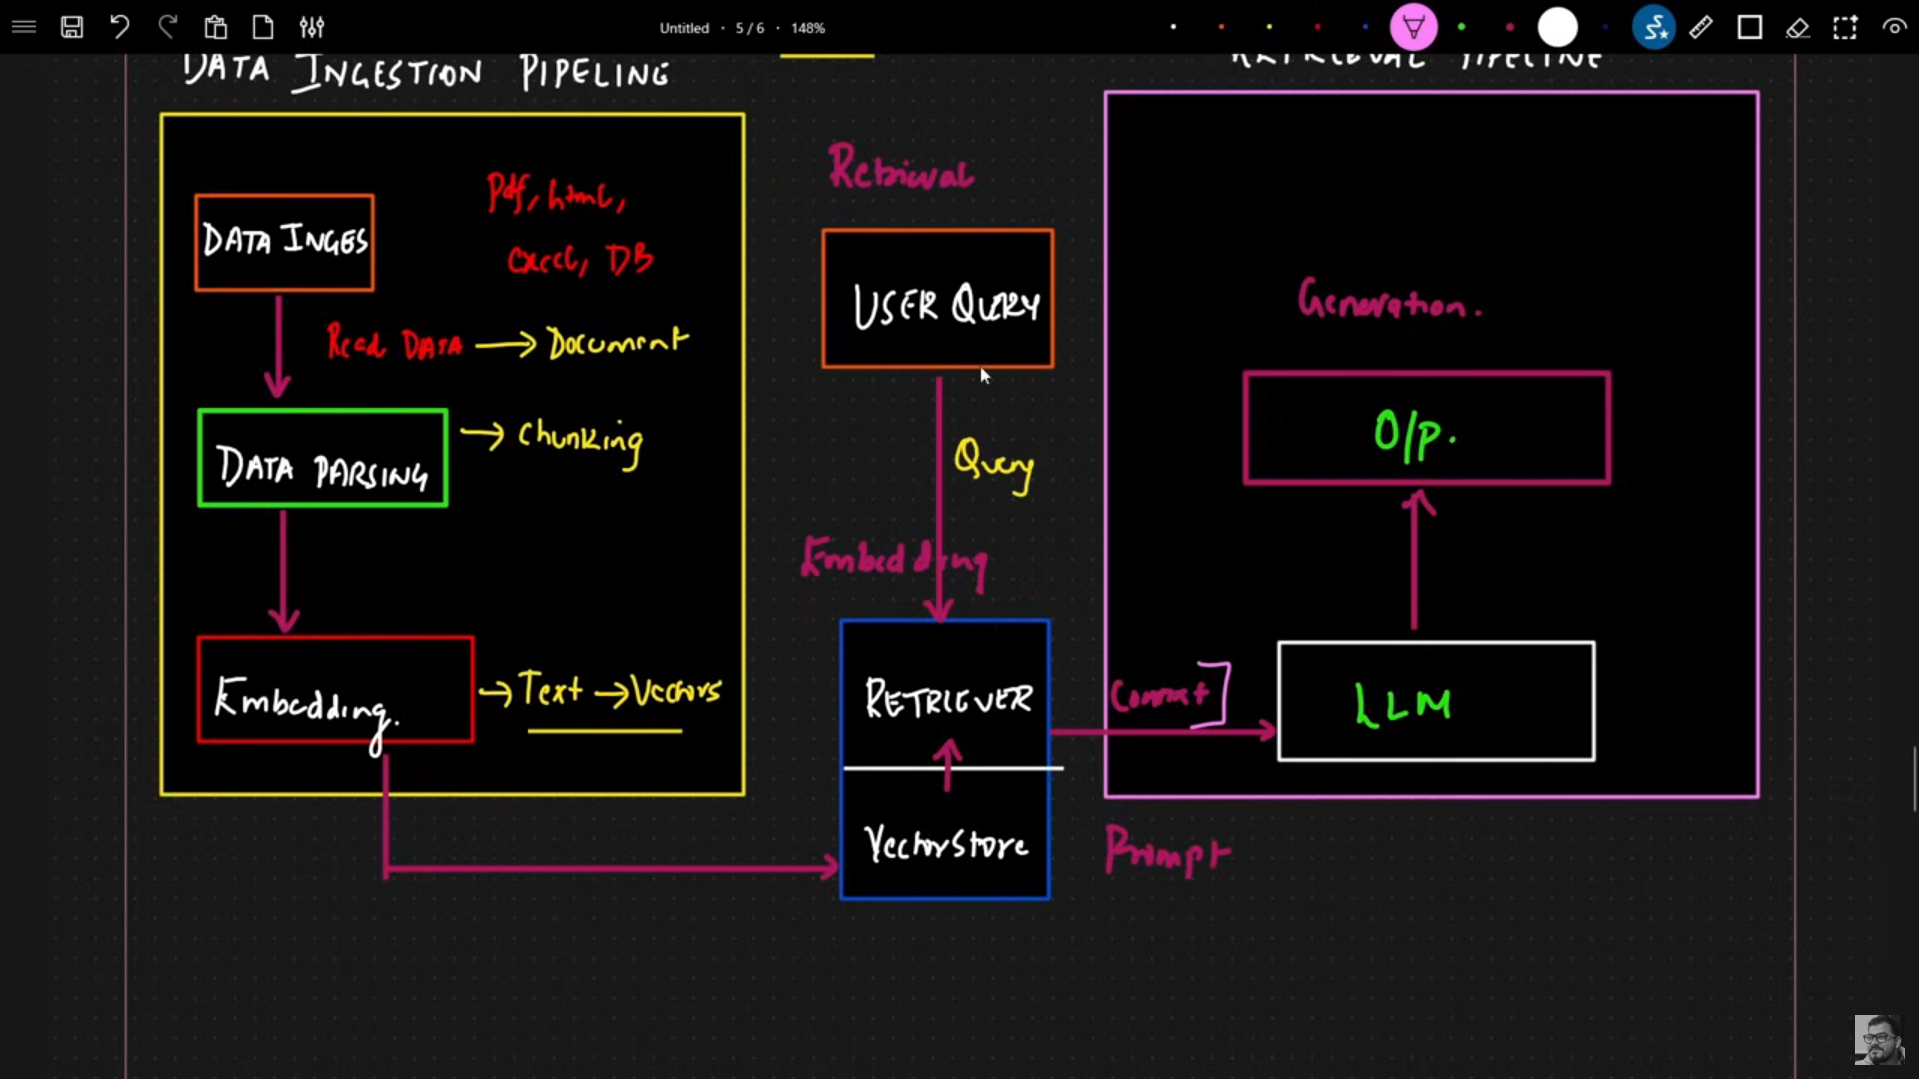 Untitled • 5 / 6 • 148%
DATA INGESTION PIPELING
RETRIEVAL PIPELINE
DATA INGES
Pdf, html,
excel, DB
Read DATA → Document
DATA PARSING
→ Chunking
Embedding.
→ Text → Vectors
Retrieval
USER QUERY
Query
Embedding
RETRIEVER
VectorStore
Context
Prompt
Generation.
O/p.
LLM